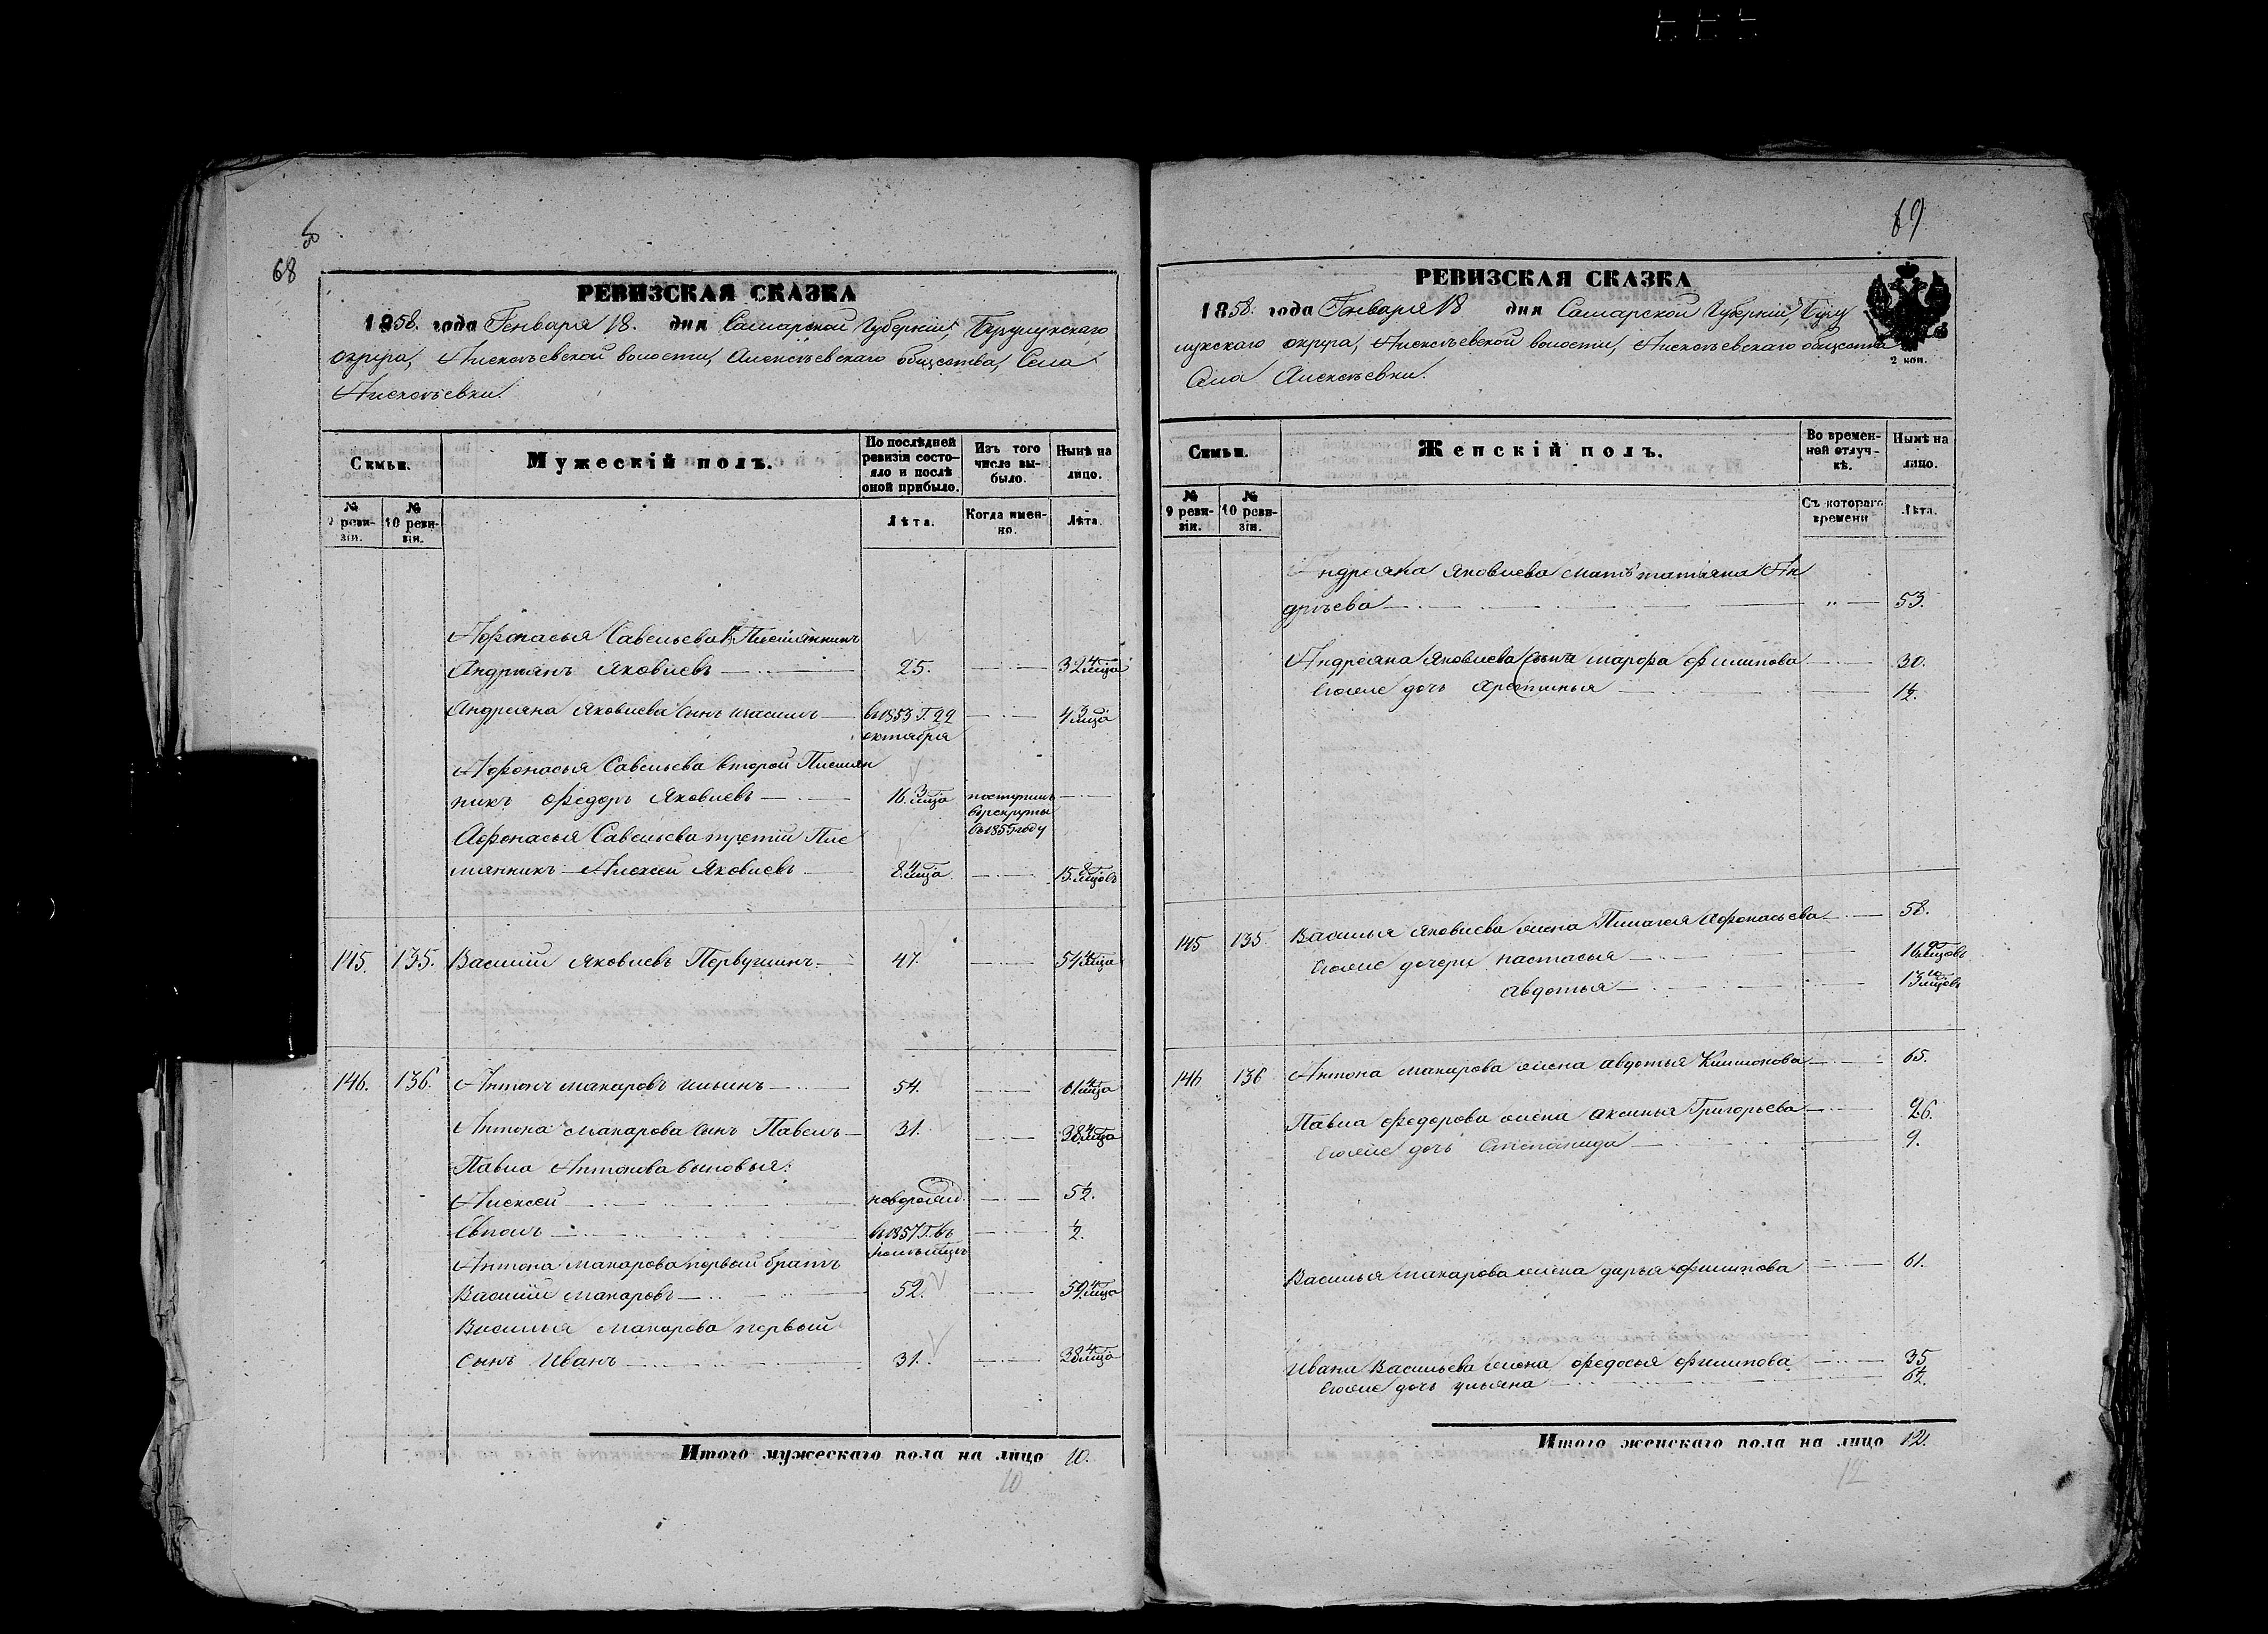 68
РЕВИЗСКАЯ СКАЗКА
1858. года Генваря 18. дня Самарской Губернии, Бузулукского
округа, Алексѣевской волости, Алексѣевскаго общества, Села
Алексѣевки.
Семьи.
Мужескій полъ.
По послѣдней ревизіи состояло и послѣ оной прибыло.
Изъ того числа выбыло.
Нынѣ на лицо.
№ 9 ревизіи.
№ 10 ревизіи.
Лѣта.
Когда именно.
Лѣта.
Афонасья Савельева 1й Племянникъ
Андриянъ Яковлевъ 25. 32 4 мца
Андрияна Яковлева сынъ въ 1853 Г. 22 октября 4 3 мца
Афонасья Савельева второй Племян
никъ Федоръ Яковлевъ 16. 3 мца поступилъ въ рекруты въ 1855 году
Афонасья Савельева третій Пле
мянникъ Алексей Яковлевъ 8. 4 мца 15. 8 мцовъ
145. 135. Василій Яковлевъ Первушинъ 47. 54 4 мца
146. 136. Антонъ Макаровъ Ильинъ 54. 61. 4 мца
Антона Макарова сынъ Павелъ 31. 38 4 мца
Павла Антонова сыновья:
Алексей новорожд. 5 ½.
въ 1857 Г. въ ½.
Антона Макарова первый братъ
Василій Макаровъ 52. 59. 4 мца
Василья Макарова первый
сынъ Иванъ 31. 38 4 мца
Итого мужескаго пола на лицо 10.
10
69
РЕВИЗСКАЯ СКАЗКА
1858. года Генваря 18 дня Самарской Губерніи, Бузу
лукскаго округа, Алексѣевской волости, Алексѣевскаго общества
Села Алексѣевки.
2 коп.
Семьи.
Женскій полъ.
Во временной отлучкѣ.
Нынѣ на лицо.
№ 9 ревизіи.
№ 10 ревизіи.
Съ котораго времени
Лѣта.
Андреяна Яковлева мать татьяна Ан
дрѣева „ 53.
Андреяна Яковлева жена марфа филипова 30.
Ево же дочь 1½.
145 135. Василья Яковлева жена Пилагея Афонасьева 58.
Ево же дочери настасья 16 9 мцовъ
Авдотья 13 10 мцовъ
146 136 Антона Макарова жена авдотья 65.
Павла Федорова жена аксинья Григорьева 26.
Ево же дочь Степанида 9.
Василья Макарова жена дарья филипова 61.
Ивана Васильева жена федосья филипова 35
Ево же дочь ульяна 6½.
Итого женскаго пола на лицо 12.
12